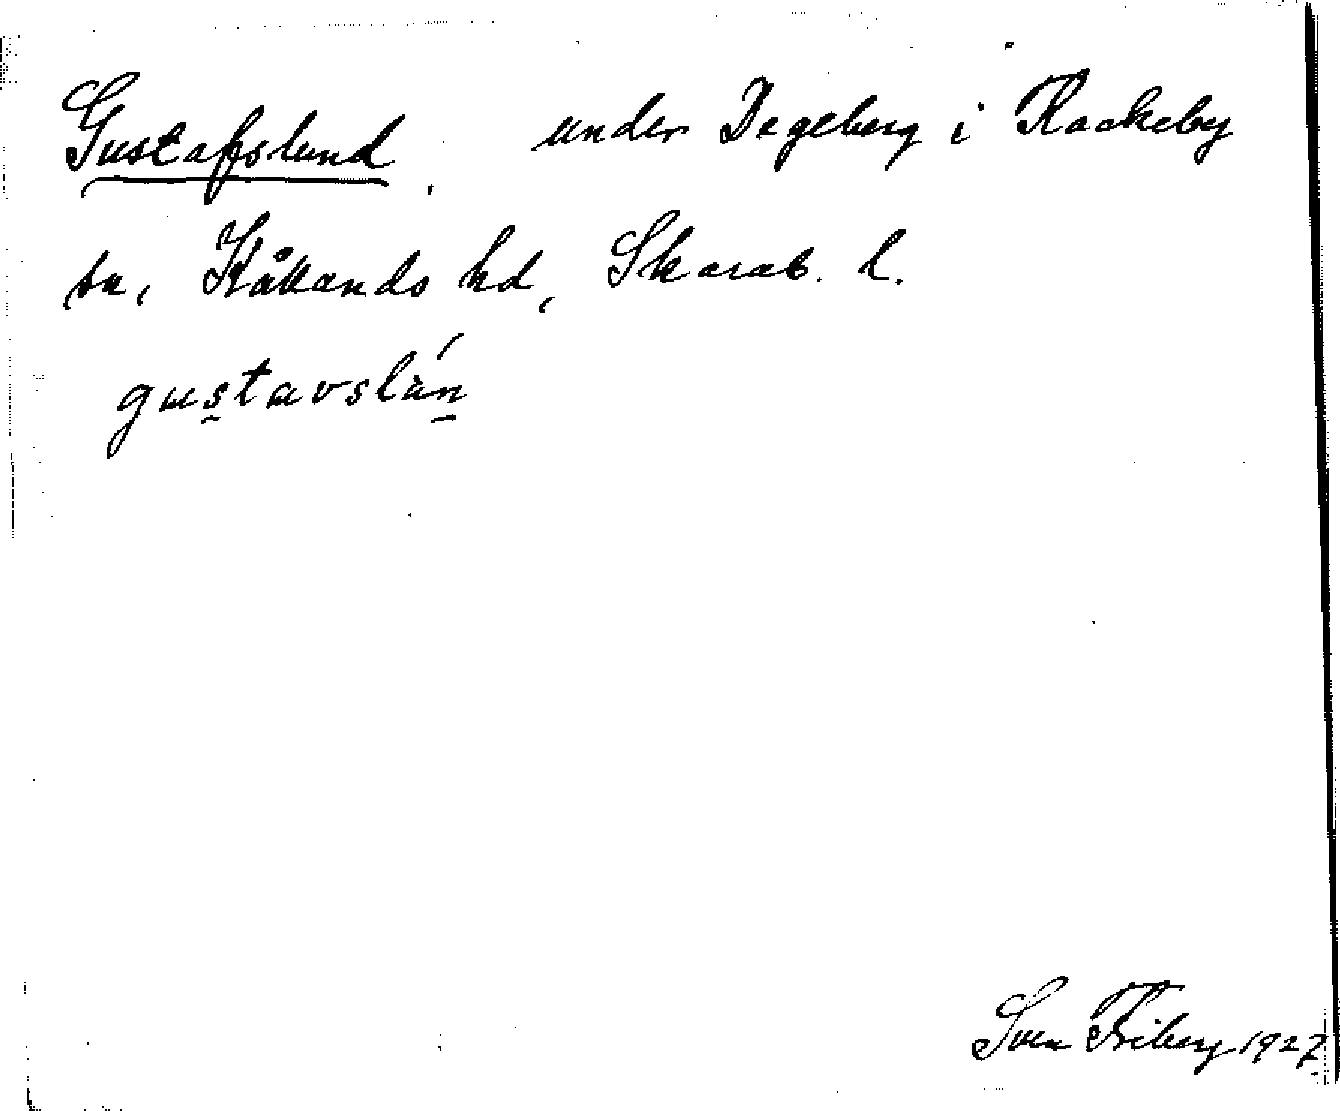 Gustafslund, under Degeberg i Rackeby
sn, Kållands hd, Skarab. l.
gustavslún
Sven Friberg 1927